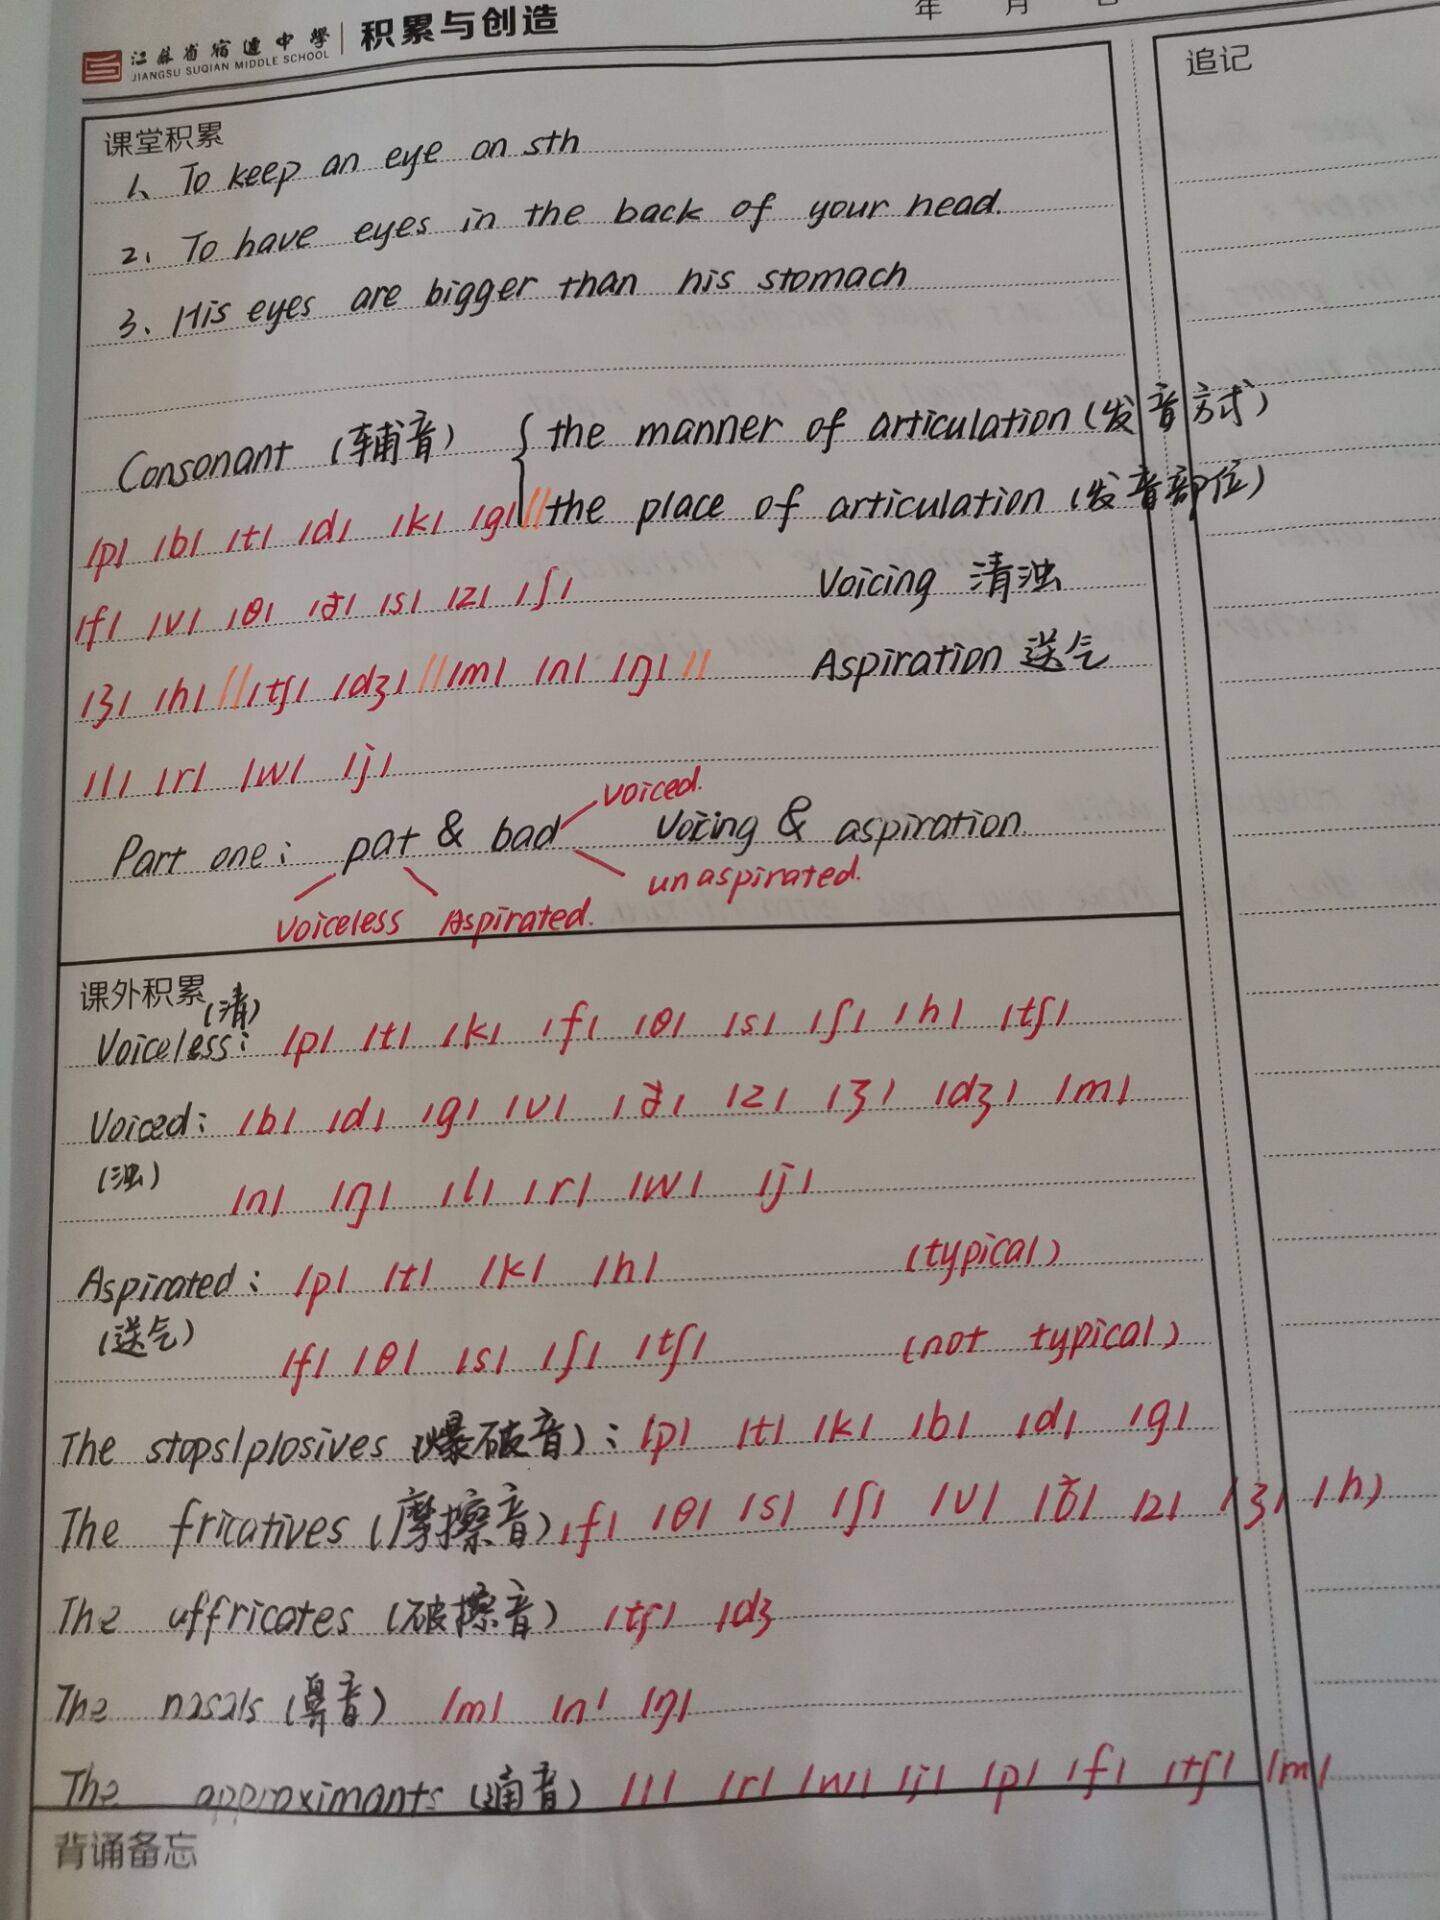 江苏省宿迁中學 积累与创造 年 月 日
JIANGSU SUQIAN MIDDLE SCHOOL
追记
课堂积累
1、To keep an eye on sth
2、To have eyes in the back of your head.
3、His eyes are bigger than his stomach
Consonant (辅音) { the manner of articulation (发音方式)
the place of articulation (发音部位)
/p/ /b/ /t/ /d/ /k/ /g/ //
/f/ /v/ /θ/ /ð/ /s/ /z/ /ʃ/ Voicing 清浊
/ʒ/ /h/ // /tʃ/ /dʒ/ // /m/ /n/ /ŋ/ // Aspiration 送气
/l/ /r/ /w/ /j/
voiced.
Part one: pat & bad Vocing & aspiration
unaspirated.
Voiceless Aspirated.
课外积累
(清)
Voiceless: /p/ /t/ /k/ /f/ /θ/ /s/ /ʃ/ /h/ /tʃ/
Voiced: /b/ /d/ /g/ /v/ /ð/ /z/ /ʒ/ /dʒ/ /m/
(浊)
/n/ /ŋ/ /l/ /r/ /w/ /j/
Aspirated: /p/ /t/ /k/ /h/ (typical)
(送气)
/f/ /θ/ /s/ /ʃ/ /tʃ/ (not typical)
The stops/plosives (爆破音): /p/ /t/ /k/ /b/ /d/ /g/
The fricatives (摩擦音) /f/ /θ/ /s/ /ʃ/ /v/ /ð/ /z/ /ʒ/ /h/
The affricates (破擦音) /tʃ/ /dʒ
The nasals (鼻音) /m/ /n/ /ŋ/
The approximants (通音) /l/ /r/ /w/ /j/ /p/ /f/ /tʃ/ /m/
背诵备忘